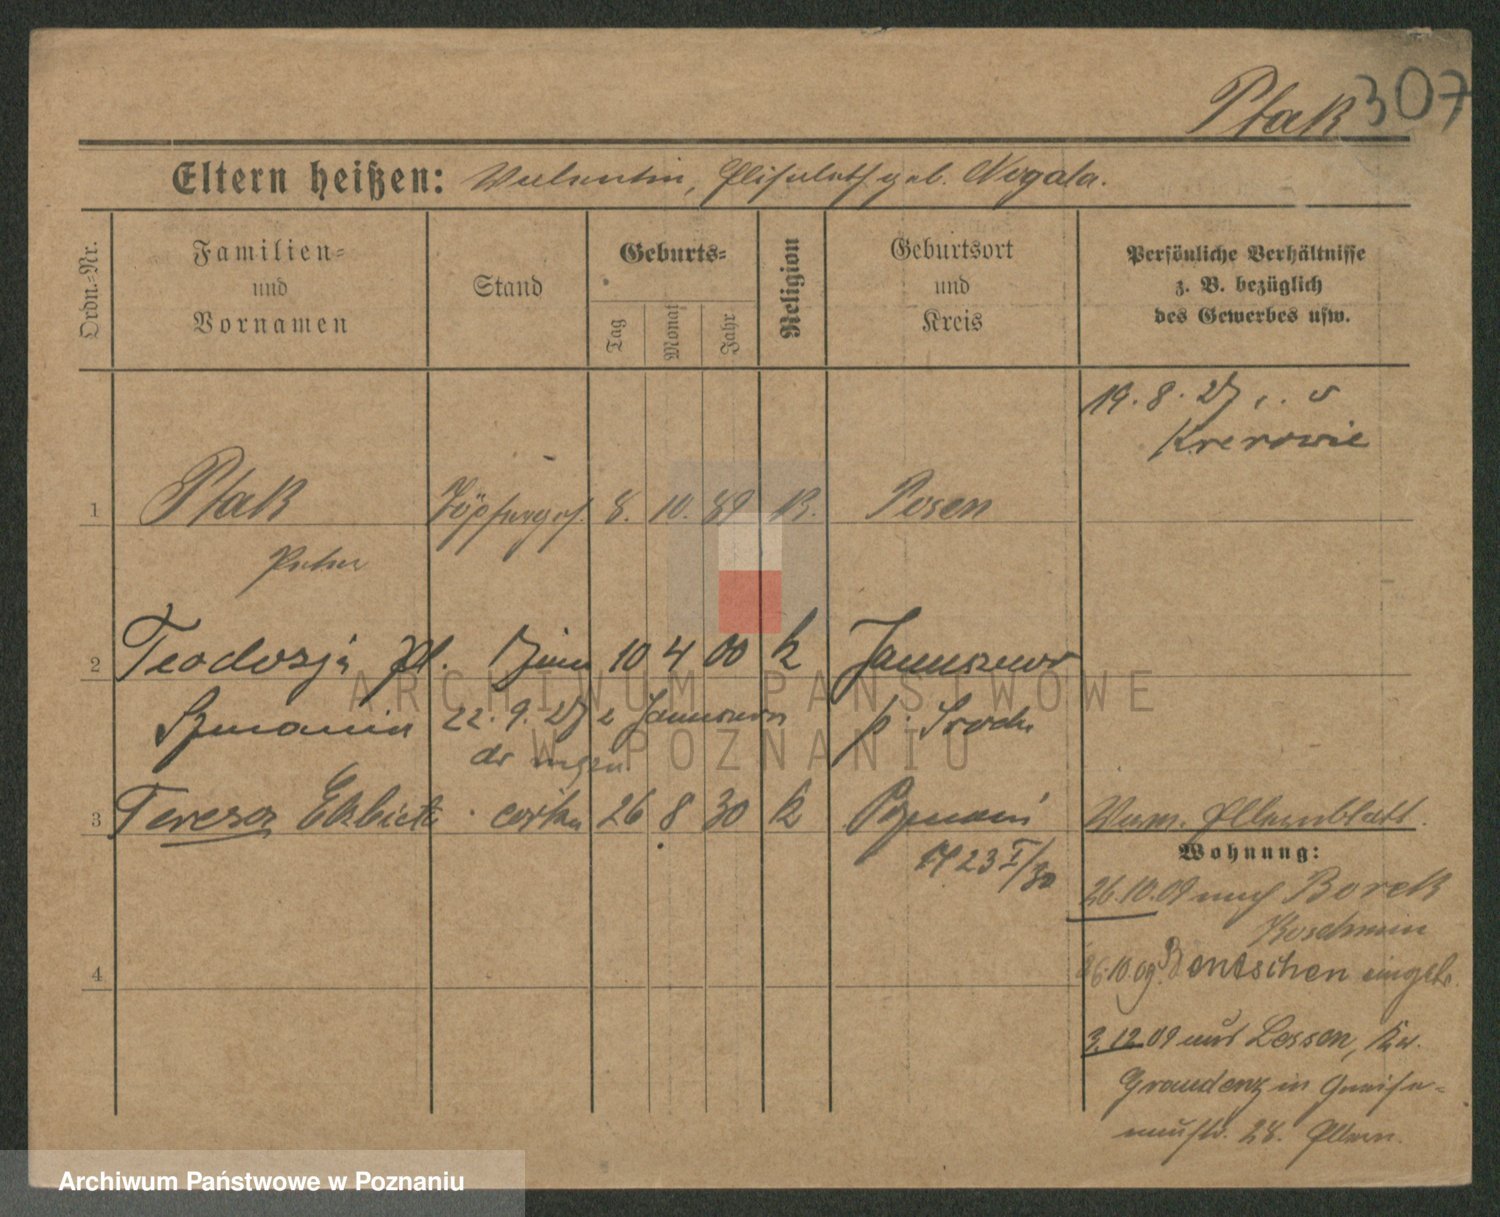 Ptak 307
Eltern heißen: Valentin, Elisabeth geb. Nogala.
Ordn.-Nr.
Familien-
und
Vornamen
Stand
Geburts-
Tag
Monat
Jahr
Religion
Geburtsort
und
Kreis
Persönliche Verhältnisse
z. B. bezüglich
des Gewerbes usw.
19. 8. 27
Krerowie
1 Ptak Töpferges. 8. 10. 89 K. Posen
Peter
2 Teodozja 10 4 00 k Januszewo
22. 9. 27 z Januszewo p. Środa
3 Teresa Elżbieta córka 26 8 30 k Poznań
Vom. Elternblatt.
Wohnung:
23 I/30
26.10.09 nach Borek
Koschmin
26.10.09. Bentschen
4
3.12.09 aus Lessen, Kr.
Graudenz in Gneise-
naustr. 28. Eltern.
ARCHIWUM PAŃSTWOWE
W POZNANIU
Archiwum Państwowe w Poznaniu